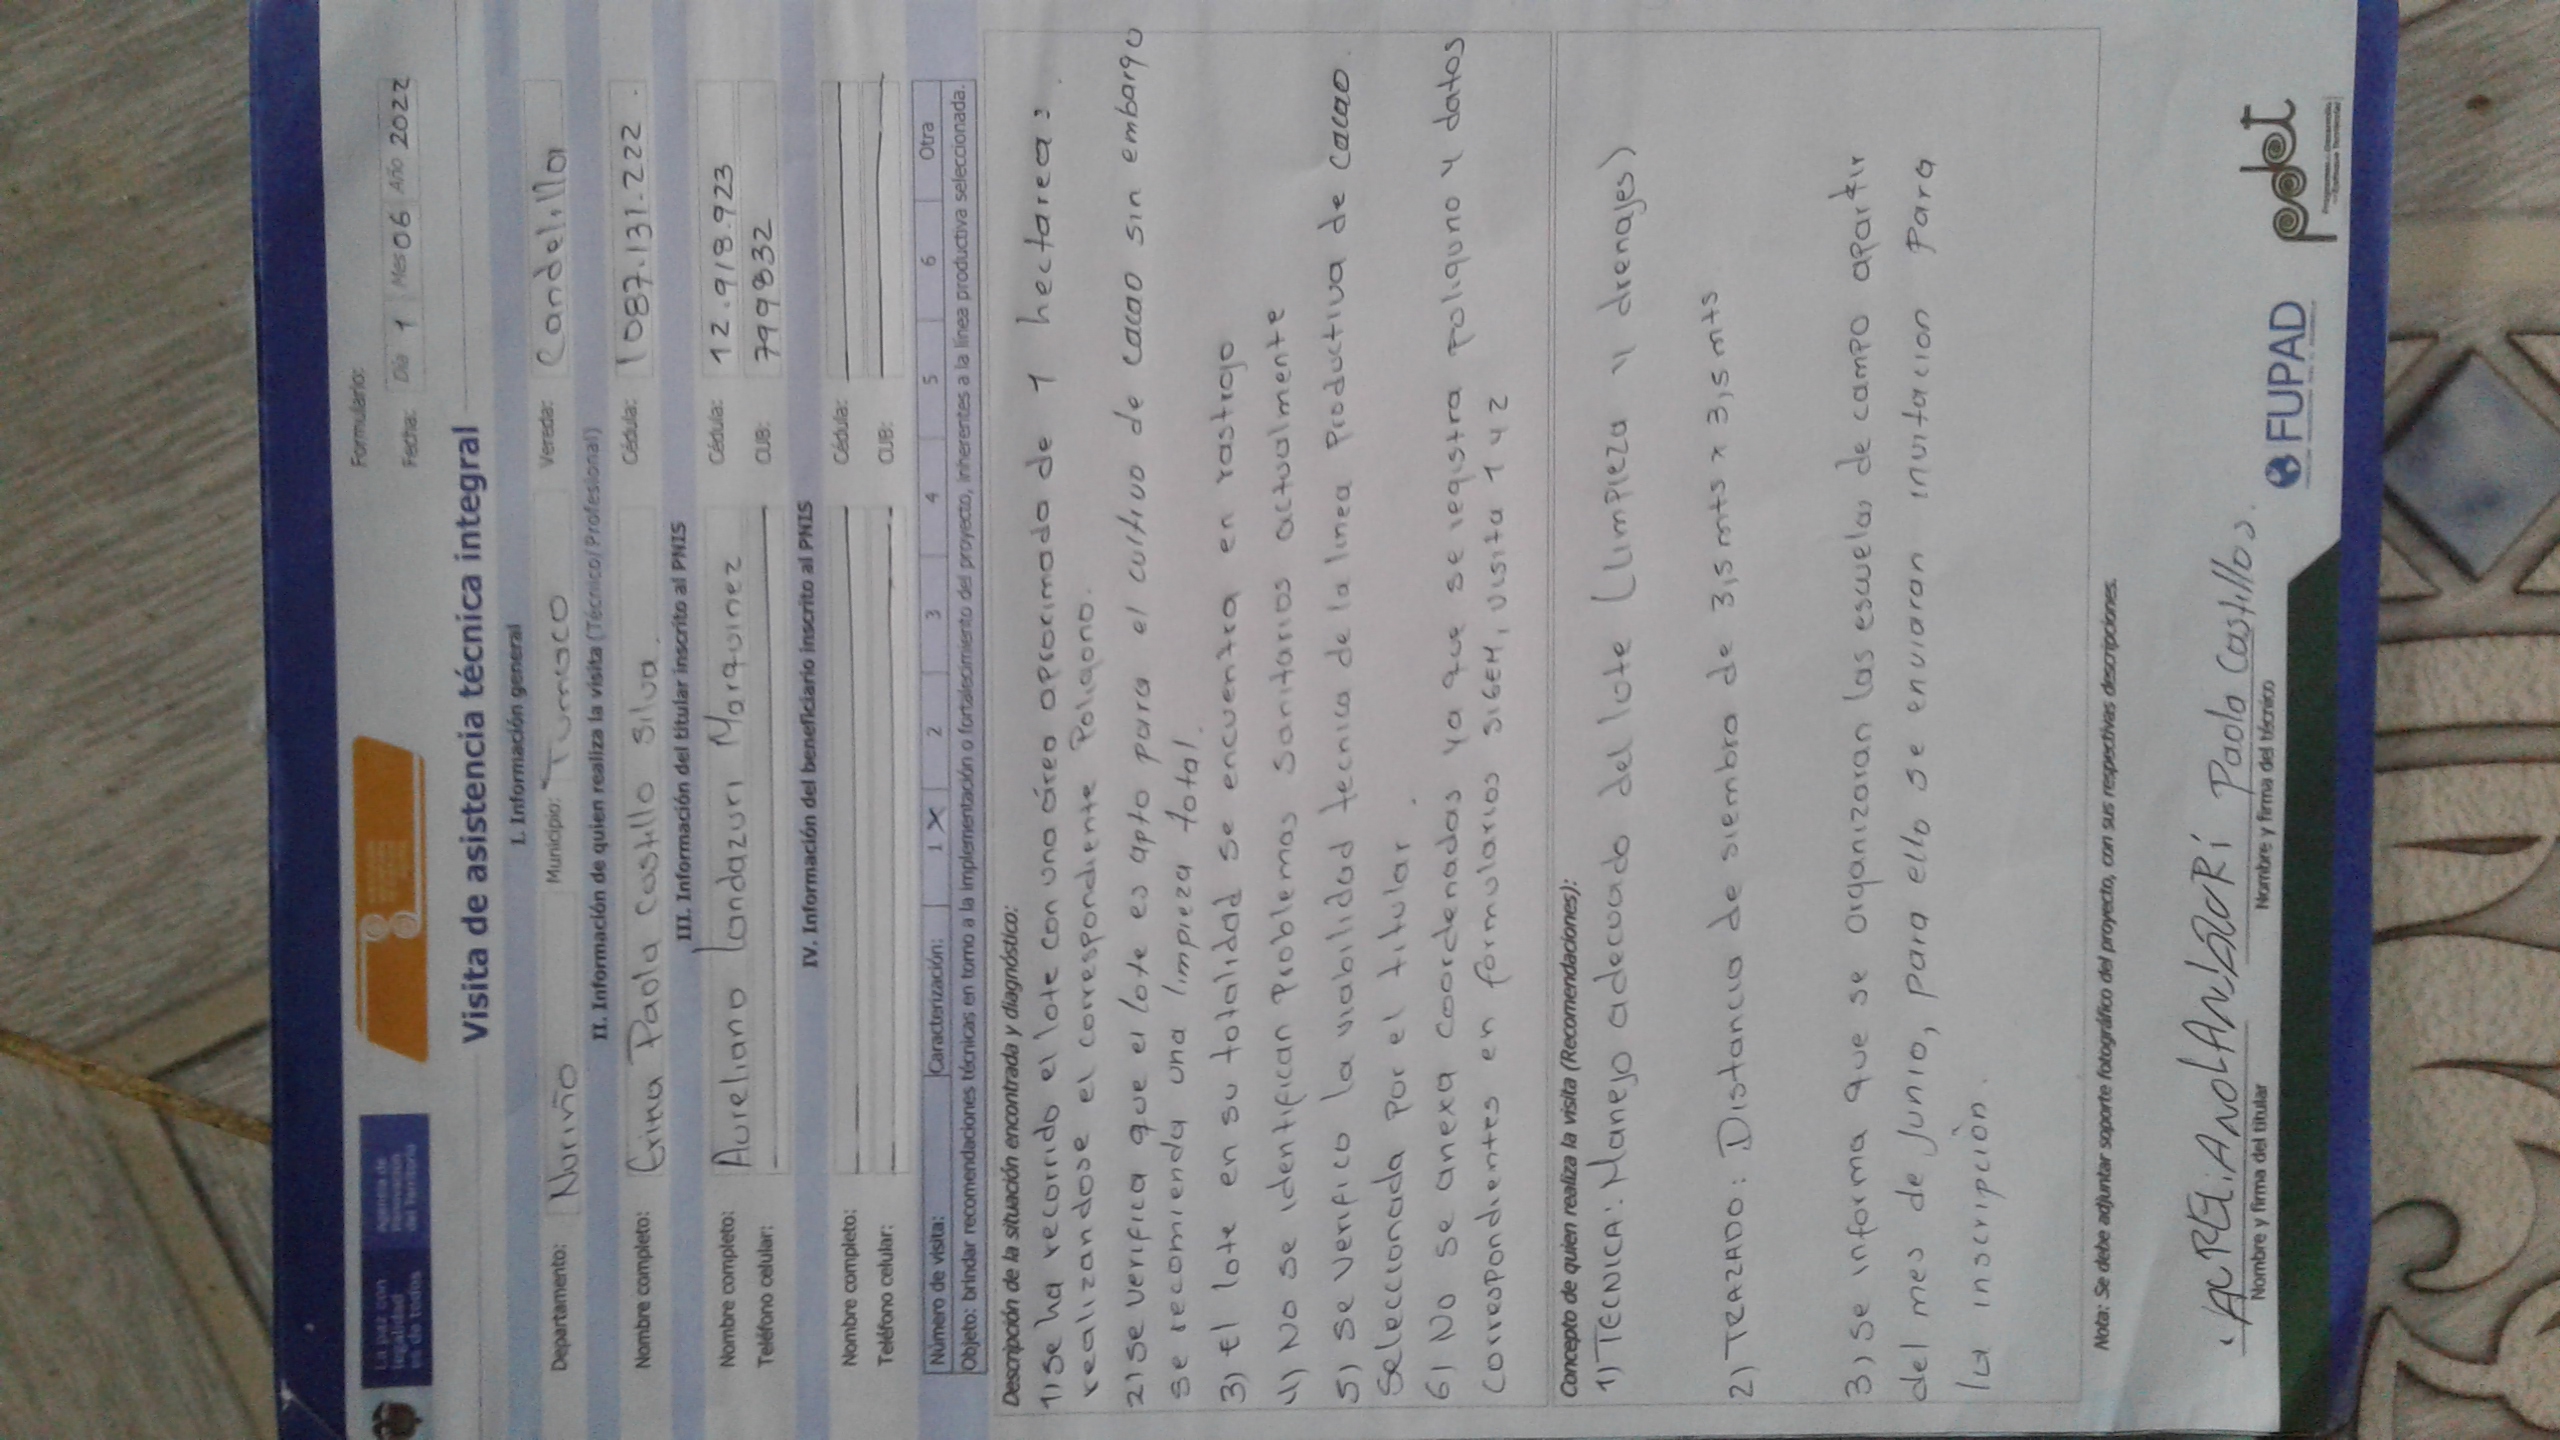 La paz con
legalidad
es de todos
Agencia de
Renovación
del Territorio
Formulario:
Fecha: Día 1 Mes 06 Año 2022
Visita de asistencia técnica integral
I. Información general
Departamento: Nariño Municipio: Tumaco Vereda: Candelillo
II. Información de quien realiza la visita (Técnico/Profesional)
Nombre completo: Erina Paola Castillo Silva. Cédula: 1087.131.222.
III. Información del titular inscrito al PNIS
Nombre completo: Aureliano Landazuri Marquinez Cédula: 12.918.923
Teléfono celular: CUB: 799832
IV. Información del beneficiario inscrito al PNIS
Nombre completo: Cédula:
Teléfono celular: CUB:
Número de visita: Caracterización: 1 X 2 3 4 5 6 Otra
Objeto: brindar recomendaciones técnicas en torno a la implementación o fortalecimiento del proyecto, inherentes a la línea productiva seleccionada.
Descripción de la situación encontrada y diagnóstico:
1) Se ha recorrido el lote con una área aprocimada de 1 hectarea:
realizandose el correspondiente Poligono.
2) Se verifica que el lote es apto para el cultivo de cacao sin embargo
se recomienda una limpieza total.
3) El lote en su totalidad se encuentra en rastrojo
4) No se identifican Problemas Sanitarios actualmente
5) Se verifico la viabilidad tecnica de la linea Productiva de cacao.
Seleccionada por el titular.
6) No se anexa coordenadas ya que se registra poliguno y datos
correspondientes en formularios SIGEM, visita 1 y 2
Concepto de quien realiza la visita (Recomendaciones):
1) TECNICA: Manejo adecuado del lote (Limpieza y drenajes)
2) TRAZADO: Distancia de siembra de 3,5 mts x 3,5 mts
3) Se informa que se organizaran las escuelas de campo apartir
del mes de Junio, para ello se enviaran invitacion para
la inscripción.
Nota: Se debe adjuntar soporte fotográfico del proyecto, con sus respectivas descripciones.
Paola Castillo S.
Nombre y firma del titular Nombre y firma del técnico
FUPAD
pdet